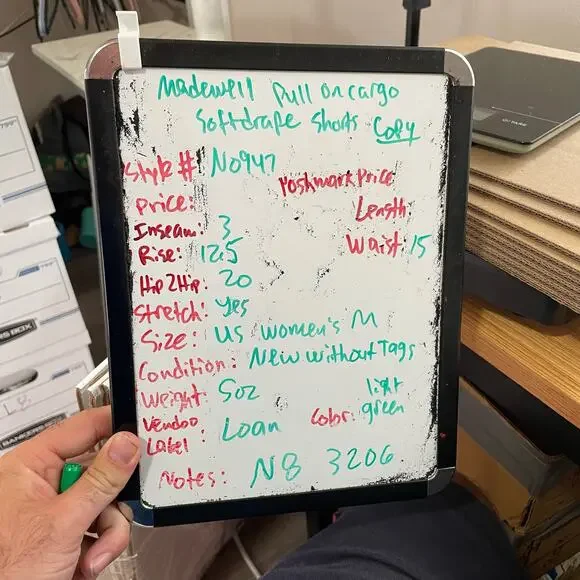 Madewell Pull on cargo
Softdrape Shorts Copy
Style # NO947
Poshmark Price
Price:
Length
Inseam: 3
Waist: 15
Rise: 12.5
Hip 2 Hip: 20
Stretch: Yes
Size: US Women's M
Condition: New without Tags
Weight: 5oz
light
Color: green
Vendoo
Label : Loan
Notes: N8 3206